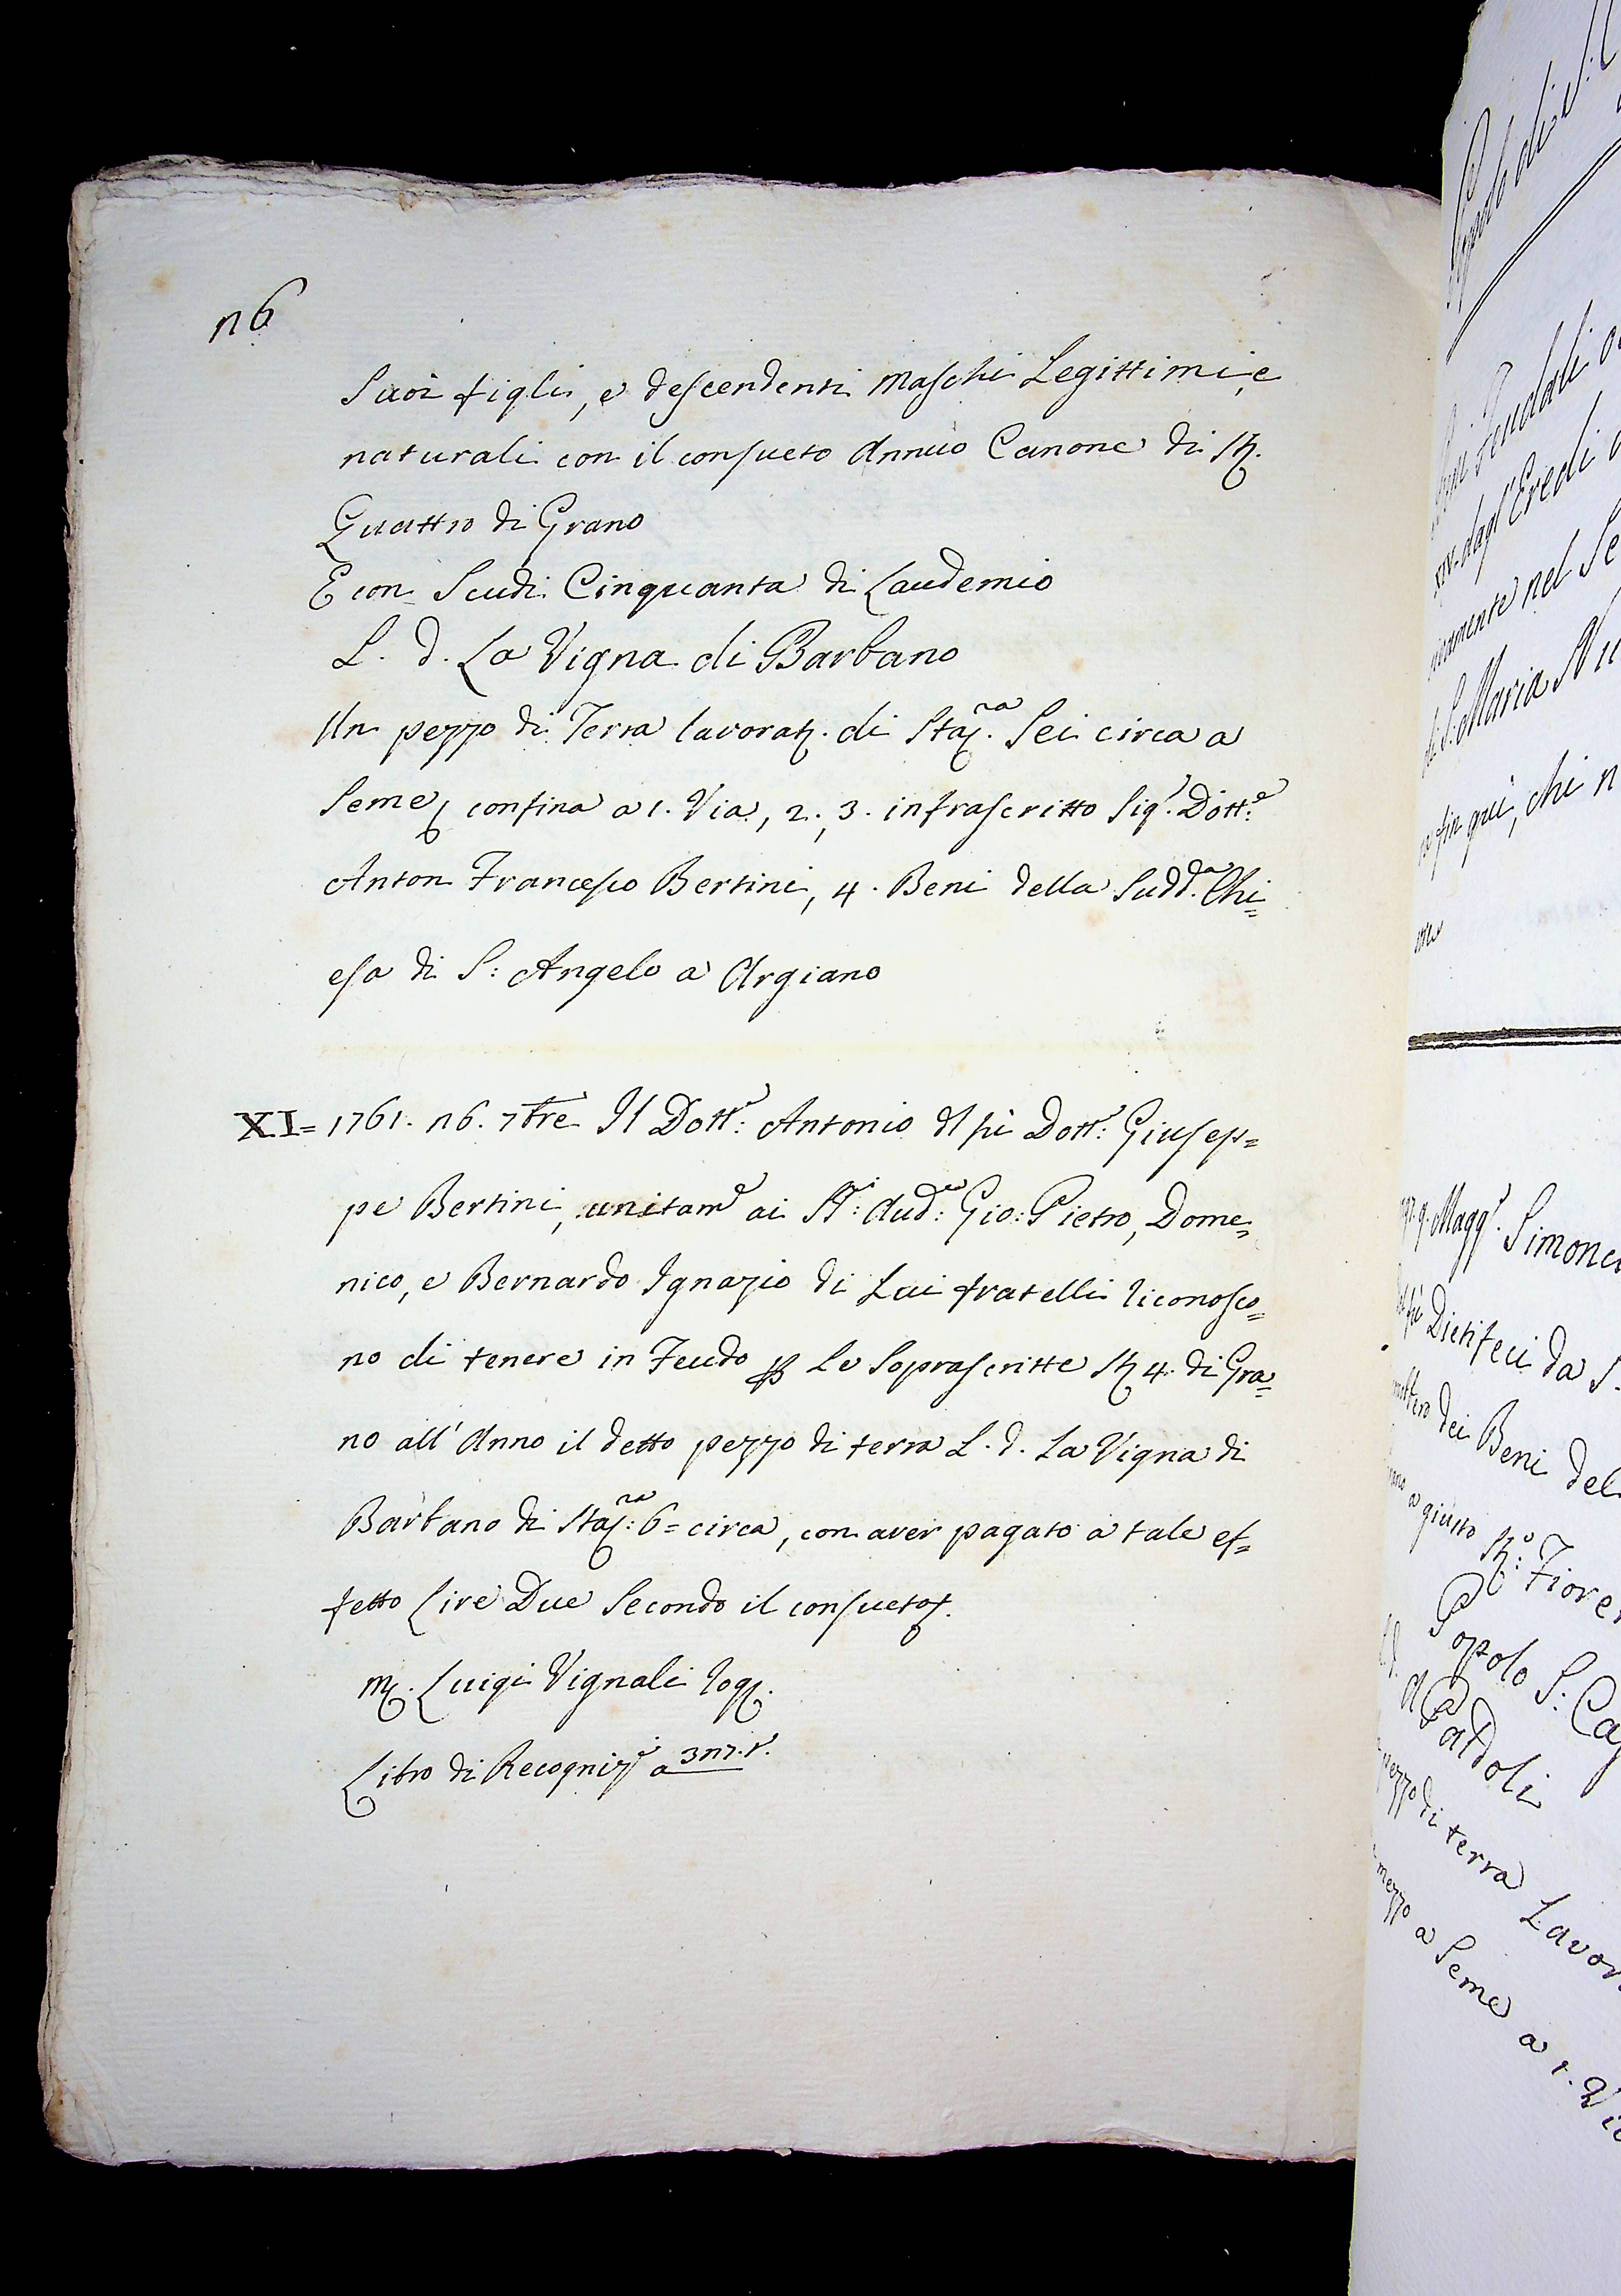 n6
Suoi figli, e descendenti Maschi Legittimi, e
naturali con il consueto Annuo Canone di St.
Quattro di Grano
E con Scudi Cinquanta di Laudemio
L. d. La Vigna di Barbano
Un pezzo di Terra lavorat. di Sta.ra Sei circa a
Seme, confina a 1. Via, 2., 3. infrascritto Sigr. Dott.e
Anton Francesco Bertini, 4. Beni della Sudd.a Chi=
esa di S: Angelo a Argiano
XI= 1761. n6. 7bre Il Dott:e Antonio del fù Dott:e Giusep=
pe Bertini, unitam.e ai SS:i Aud:e Gio: Pietro, Dome=
nico, e Bernardo Ignazio di Lui fratelli riconosco=
no di tenere in Feudo p le Soprascritte St 4. di Gra=
no all'Anno il detto pezzo di terra L. d. La Vigna di
Barbano di Sta:ra 6= circa, con aver pagato a tale ef=
fetto Lire Due Secondo il consueto.
M. Luigi Vignali Rog.
Libro di Recogniz.i a 3n7. r.
Popolo di S:
Beni Feudali
XIV. dagl'Eredi
nel Se
di S: Maria Nu
fin quì, chi n
Magg.r Simone
Dietifeci da S.
dei Beni del
a giusto St:o Fiore
Popolo S: Ca
L. d. a Pardoli
pezzo di terra Lavor
mezzo a Seme a 1. Via